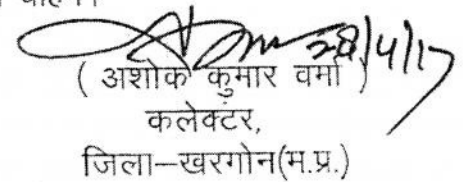 28/4/17
( अशोक कुमार वर्मा )
कलेक्टर,
जिला–खरगोन(म.प्र.)